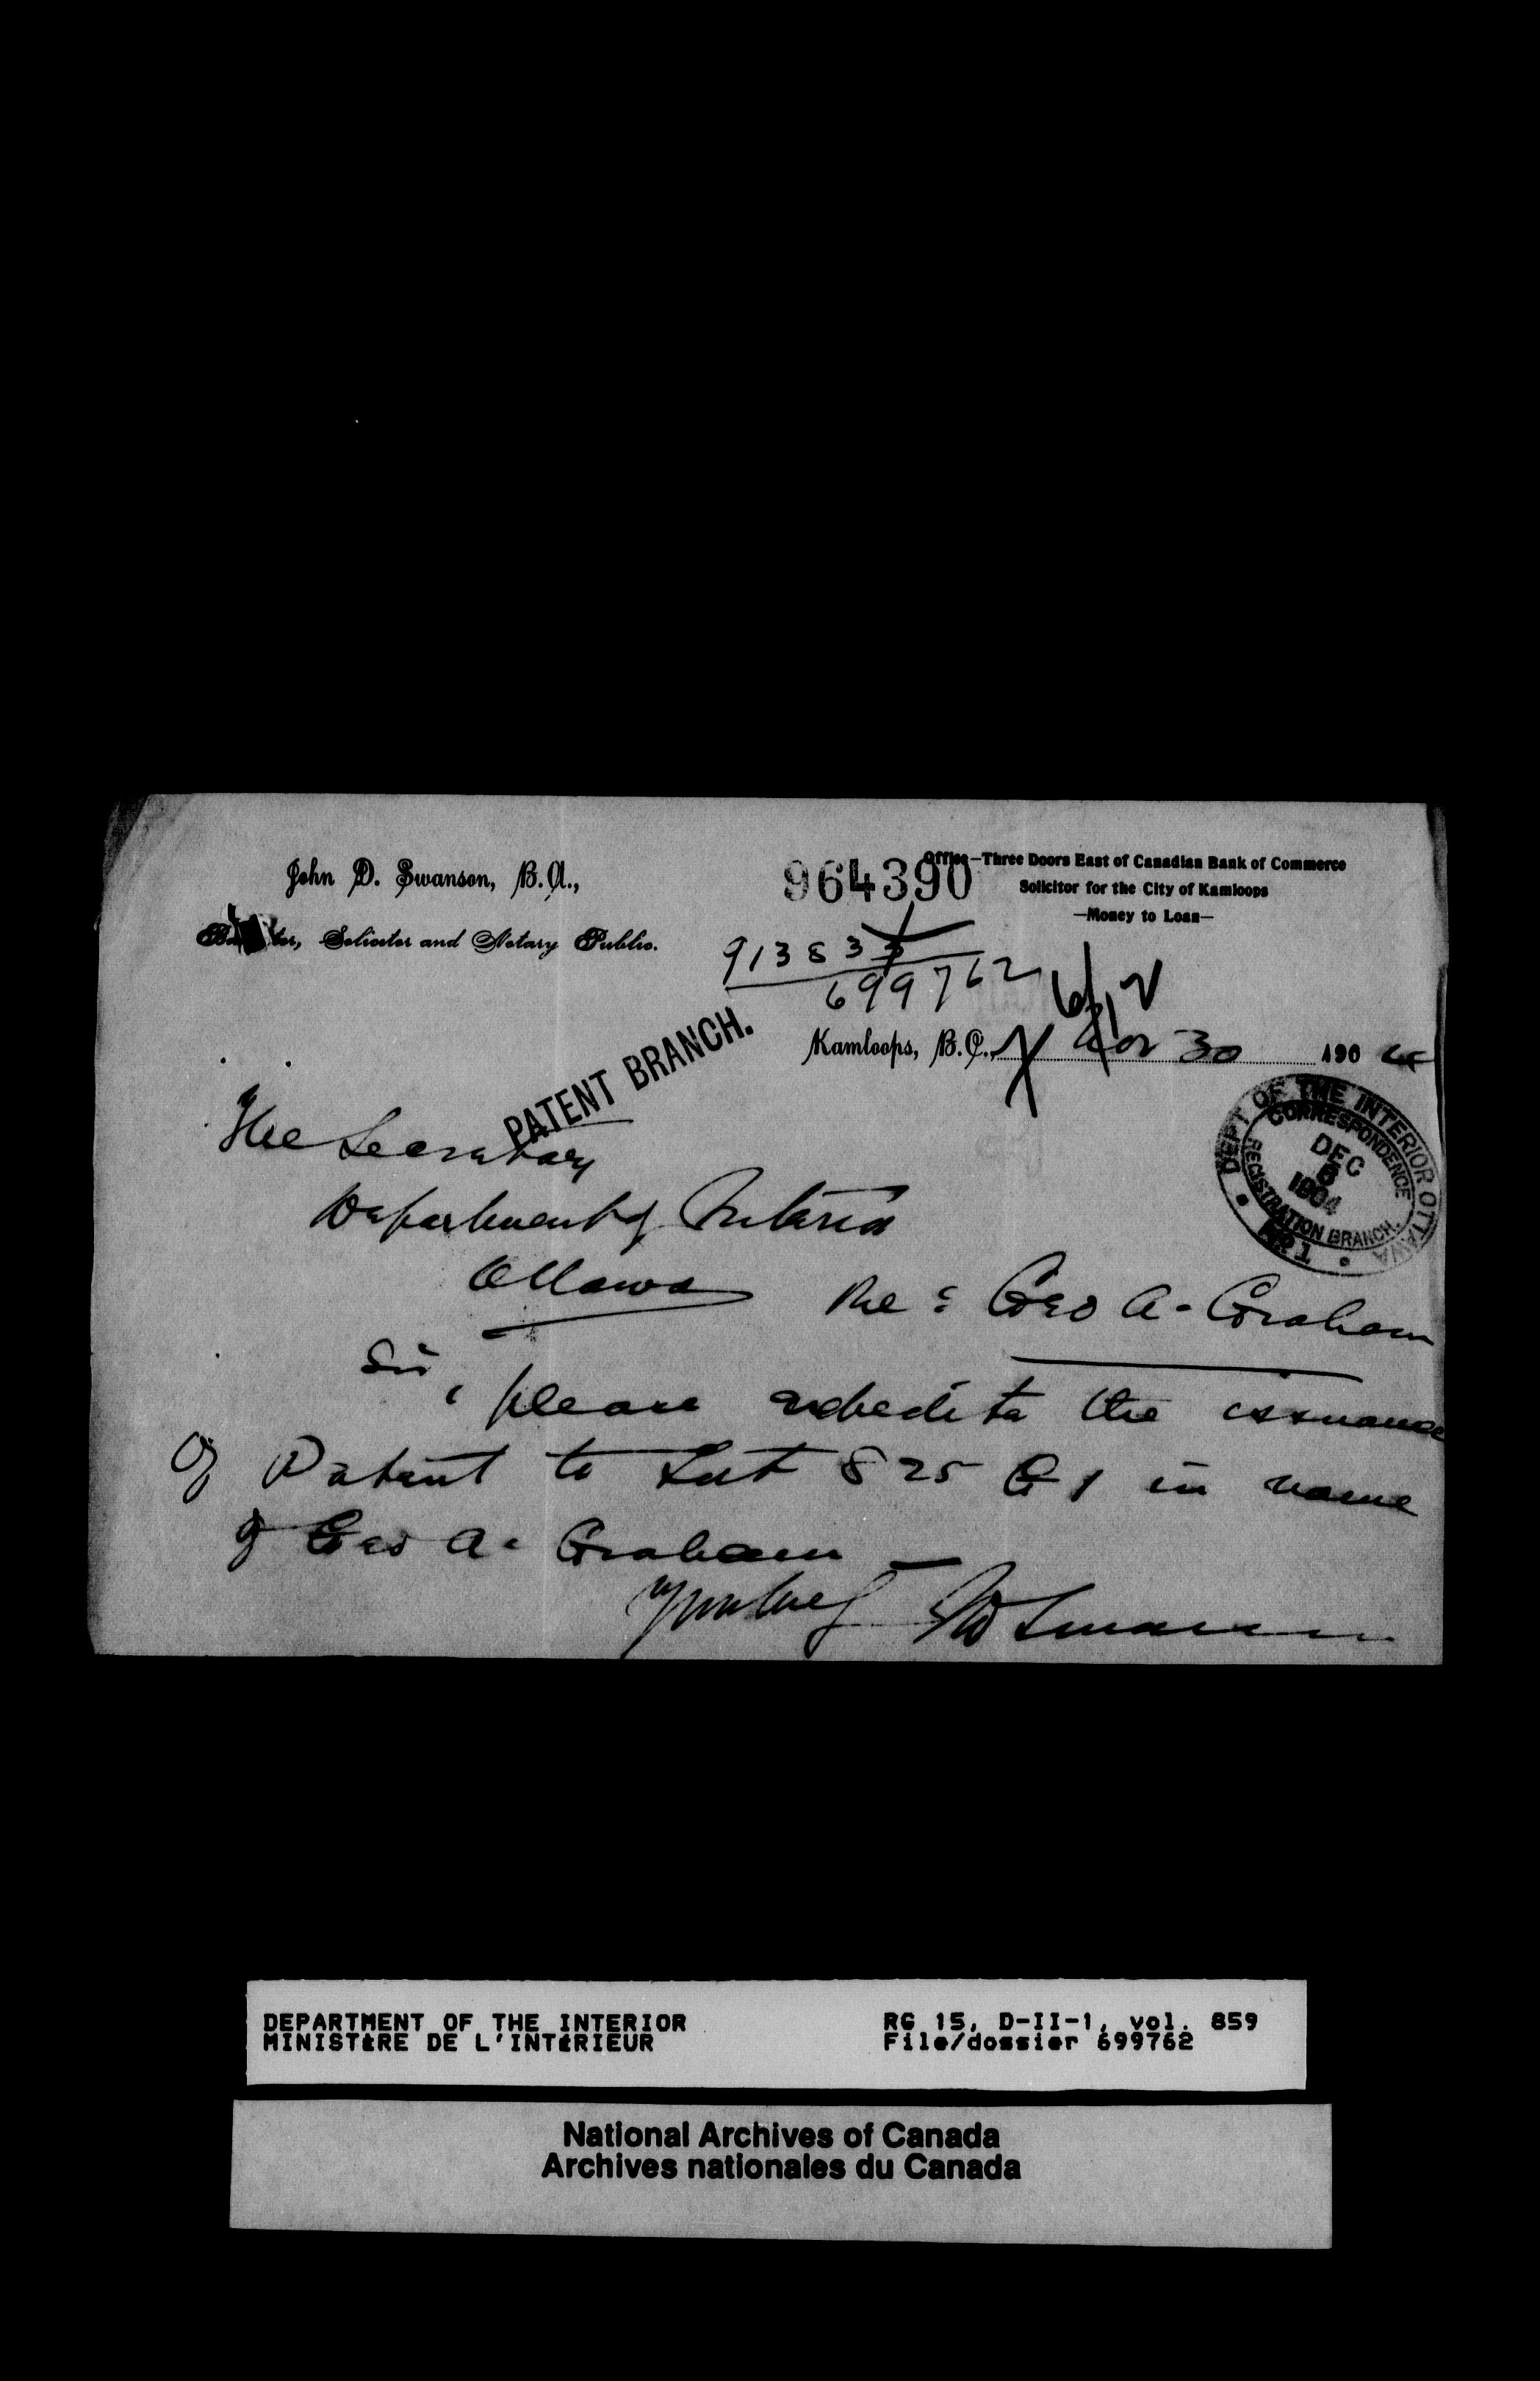 John D. Swanson, B.A.,
Solicitor and Notary Public.
964390
Office—Three Doors East of Canadian Bank of Commerce
Solicitor for the City of Kamloops
—Money to Loan—
913833
699762
6/12
Kamloops, B.C., Nov 30 1904
PATENT BRANCH.
DEPT OF THE INTERIOR OTTAWA
CORRESPONDENCE
DEC
1904
REGISTRATION BRANCH.
No. 1
The Secretary
Department of Interior
Ottawa
Re: Geo A. Graham
Sir,
please expedite the issuance
of Patent to Lot 825 G 1 in name
of Geo A. Graham
Yours truly JD Swanson
DEPARTMENT OF THE INTERIOR
MINISTÈRE DE L'INTÉRIEUR
RG 15, D-II-1, vol. 859
File/dossier 699762
National Archives of Canada
Archives nationales du Canada